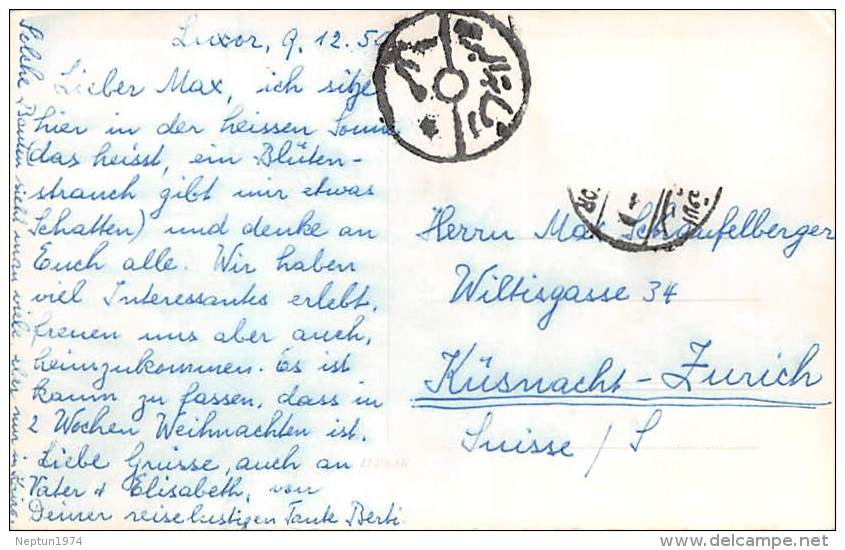 Luxor, 9.12.5
Lieber Max, ich sitze
hier in der heissen Sonne
(das heisst, ein Blüten-
strauch gibt mir etwas
Schatten) und denke an
Euch alle. Wir haben
viel Interessantes erlebt,
freuen uns aber auch,
heimzukommen. Es ist
kaum zu fassen, dass in
2 Wochen Weihnachten ist.
Liebe Grüsse, auch an
Vater & Elisabeth, von
Deiner reiselustigen Tante Berti.
Solche Bauten sieht man viele, aber nur in Kairo.
Herrn Max Schaufelberger
Wiltisgasse 34
Küsnacht-Zürich
Suisse / S
Neptun1974
delcampe.net